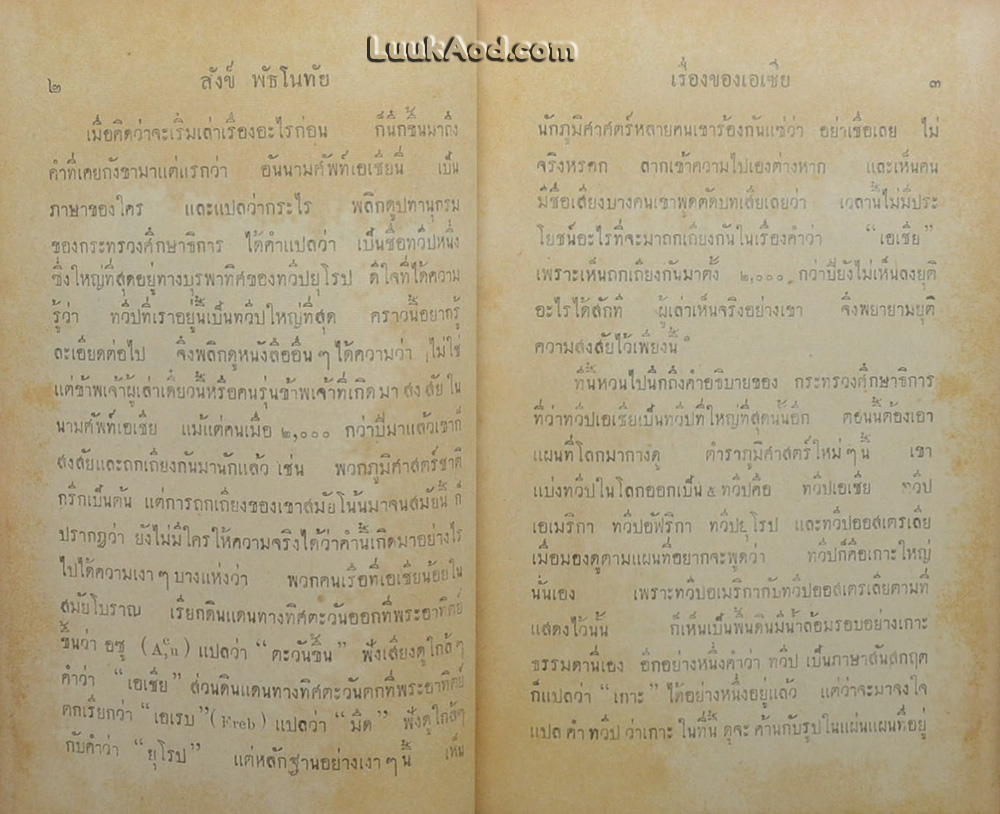 LuukAod.com
๒ สังข์ พัธโนทัย
เมื่อคิดว่าจะเริ่มเล่าเรื่องอะไรก่อน ก็นึกขึ้นมาถึง
คำที่เคยกังขามาแต่แรกว่า อันนามศัพท์เอเซียนี้ เป็น
ภาษาของใคร และแปลว่ากระไร พลิกดูปทานุกรม
ของกระทรวงศึกษาธิการ ได้คำแปลว่า เป็นชื่อทวีปหนึ่ง
ซึ่งใหญ่ที่สุดอยู่ทางบุรพาทิศของทวีปยุโรป ดีใจที่ได้ความ
รู้ว่า ทวีปที่เราอยู่นี้เป็นทวีปใหญ่ที่สุด คราวนี้อยากรู้
ละเอียดต่อไป จึงพลิกดูหนังสืออื่น ๆ ได้ความว่า ไม่ใช่
แต่ข้าพเจ้าผู้เล่าเดี๋ยวนี้หรือคนรุ่นข้าพเจ้าที่เกิดมา สงสัยใน
นามศัพท์เอเซีย แม้แต่คนเมื่อ ๒,๐๐๐ กว่าปีมาแล้วเขาก็
สงสัยและถกเถียงกันมานักแล้ว เช่น พวกภูมิศาสตร์ชาติ
กรีกเป็นต้น แต่การถกเถียงของเขาสมัยโน้นมาจนสมัยนี้ ก็
ปรากฏว่า ยังไม่มีใครให้ความจริงได้ว่าคำนี้เกิดมาอย่างไร
ไปได้ความเงา ๆ บางแห่งว่า พวกคนเรือที่เอเซียน้อยใน
สมัยโบราณ เรียกดินแดนทางทิศตะวันออกที่พระอาทิตย์
ขึ้นว่า อซู ( ) แปลว่า “ตะวันขึ้น” ฟังเสียงดูใกล้ๆ
คำว่า “เอเซีย” ส่วนดินแดนทางทิศตะวันตกที่พระอาทิตย์
ตกเรียกว่า “เอเรบ” (Ereb) แปลว่า “มืด” ฟังดูใกล้ๆ
กับคำว่า “ยุโรป” แต่หลักฐานอย่างเงา ๆ นี้ เห็น
เรื่องของเอเซีย ๓
นักภูมิศาศตร์หลายคนเขาร้องกันแซ่ว่า อย่าเชื่อเลย ไม่
จริงหรอก ลากเข้าความไปเองต่างหาก และเห็นคน
มีชื่อเสียงบางคนเขาพูดตัดบทเสียเลยว่า เวลานี้ไม่มีประ
โยชน์อะไรที่จะมาถกเถียงกันในเรื่องคำว่า “เอเซีย”
เพราะเห็นถกเถียงกันมาตั้ง ๒,๐๐๐ กว่าปียังไม่เห็นลงยุติ
อะไรได้สักที ผู้เล่าเห็นจริงอย่างเขา จึงพยายามยุติ
ความสงสัยไว้เพียงนี้
ทีนี้หวนไปนึกถึงคำอธิบายของ กระทรวงศึกษาธิการ
ที่ว่าทวีปเอเซียเป็นทวีปที่ใหญ่ที่สุดนั้นอีก ตอนนี้ต้องเอา
แผนที่โลกมากางดู ตำราภูมิศาสตร์ใหม่ ๆ นี้ เขา
แบ่งทวีปในโลกออกเป็น ๕ ทวีปคือ ทวีปเอเซีย ทวีป
เอเมริกา ทวีปอัฟริกา ทวีปยุโรป และทวีปออสเตรเลีย
เมื่อมองดูตามแผนที่อยากจะพูดว่า ทวีปก็คือเกาะใหญ่
นั่นเอง เพราะทวีปอเมริกากับทวีปออสเตรเลียตามที่
แสดงไว้นั้น ก็เห็นเป็นพื้นดินมีน้ำล้อมรอบอย่างเกาะ
ธรรมดานี่เอง อีกอย่างหนึ่งคำว่า ทวีป เป็นภาษาสันสกฤต
ก็แปลว่า “เกาะ” ได้อย่างหนึ่งอยู่แล้ว แต่ว่าจะมาจงใจ
แปล คำ ทวีป ว่าเกาะ ในที่นี้ ดูจะ ค้านกับรูปในแผ่นแผนที่อยู่